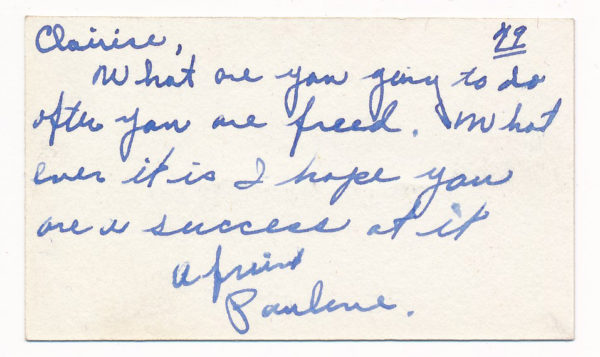 Clairise, 49
What are you going to do
after you are freed. What
ever it is I hope you
are a success at it
A friend
Paulene.